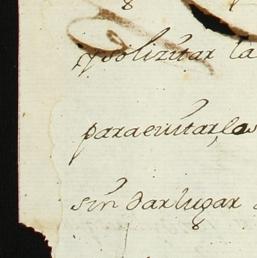 solizitar la
para evitar, los
sin dar lugar